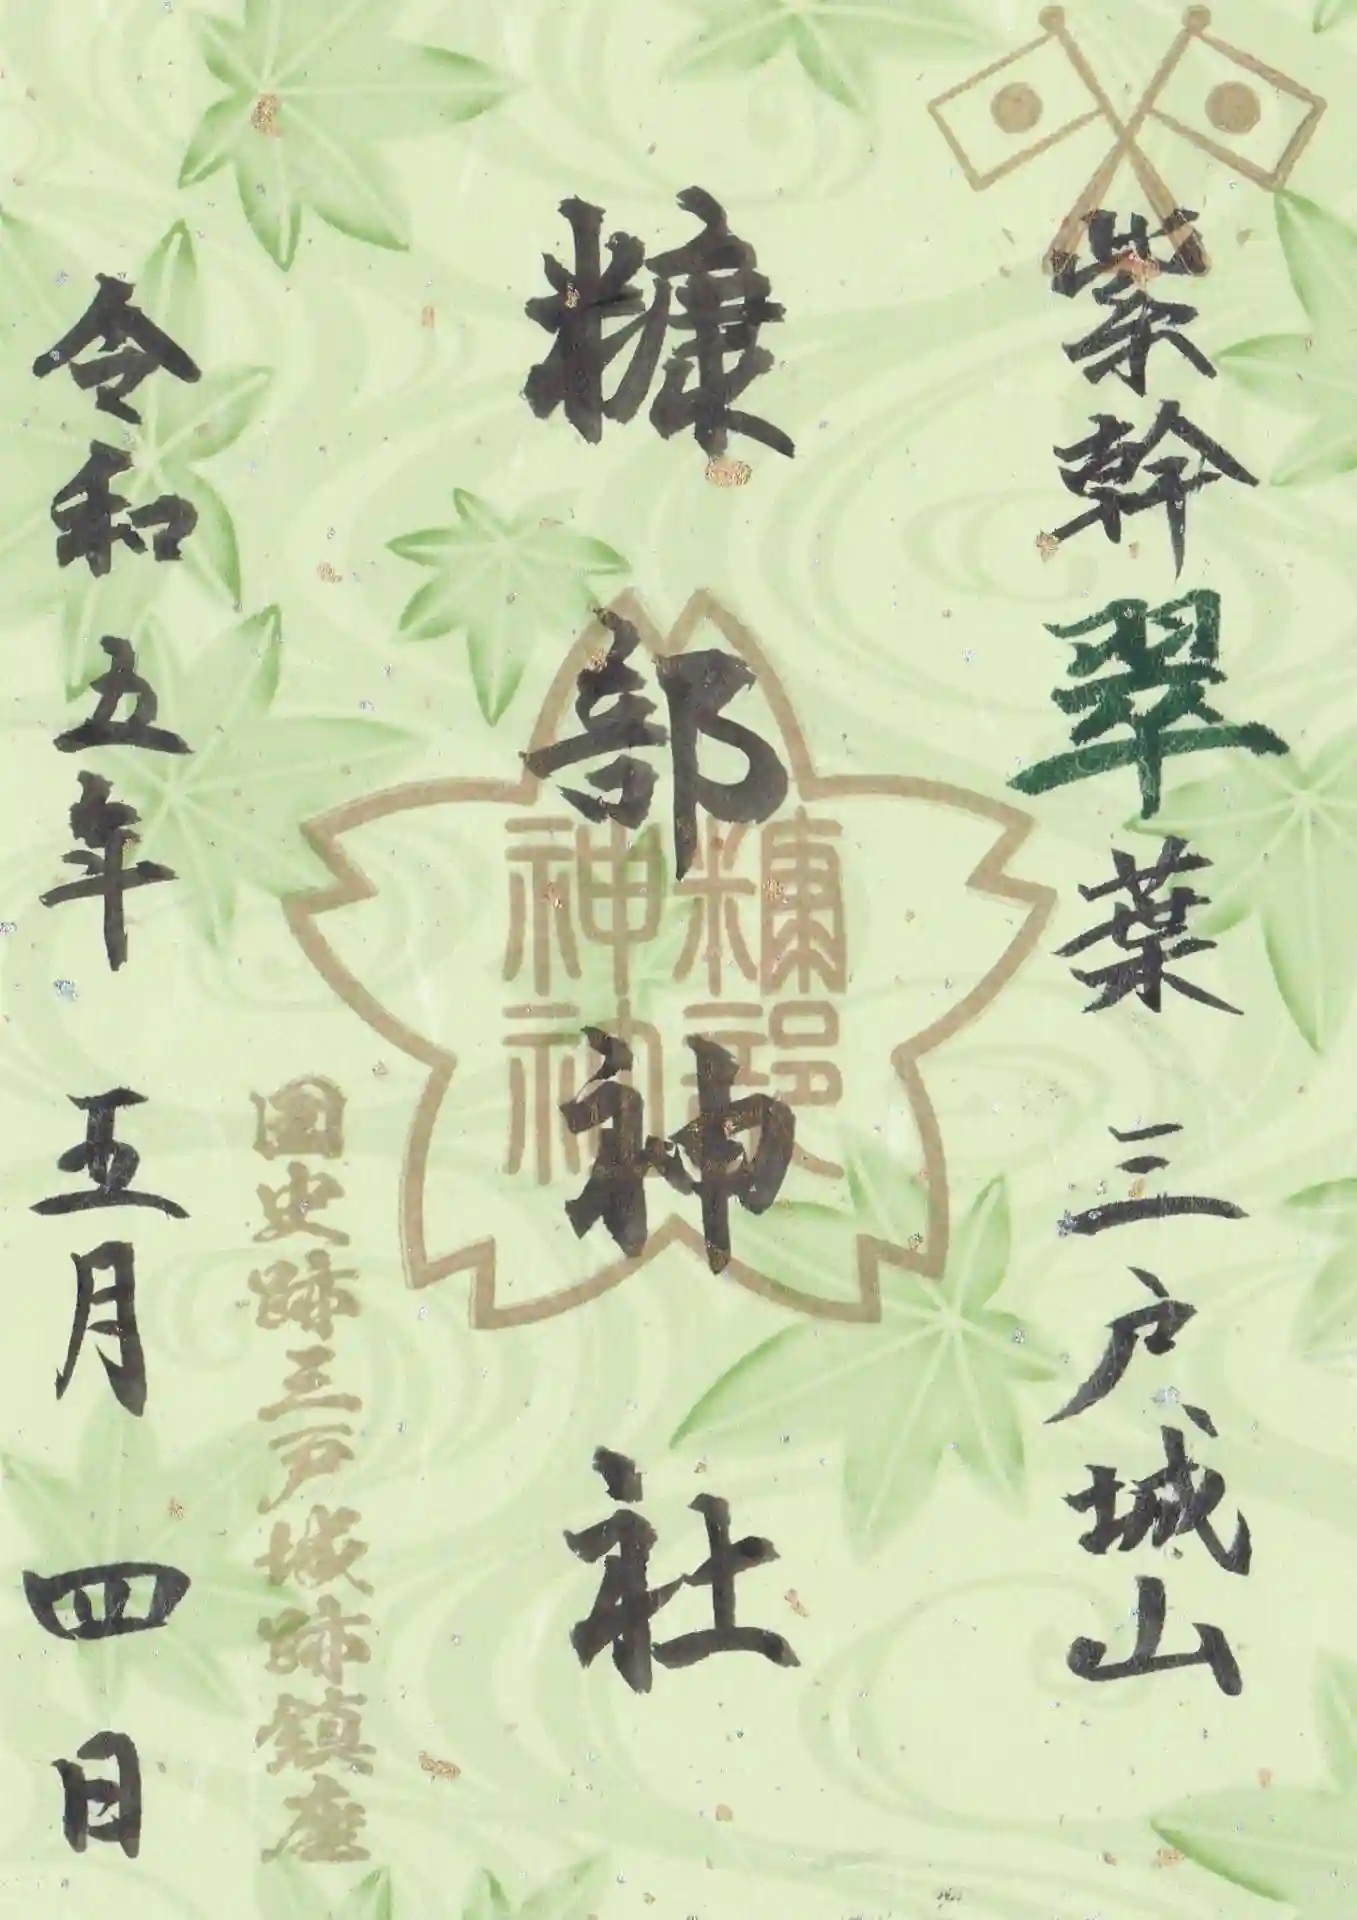 紫幹翠葉 三戸城山
糠部神社
糠部
神社
国史跡三戸城跡鎮座
令和五年 五月 四日